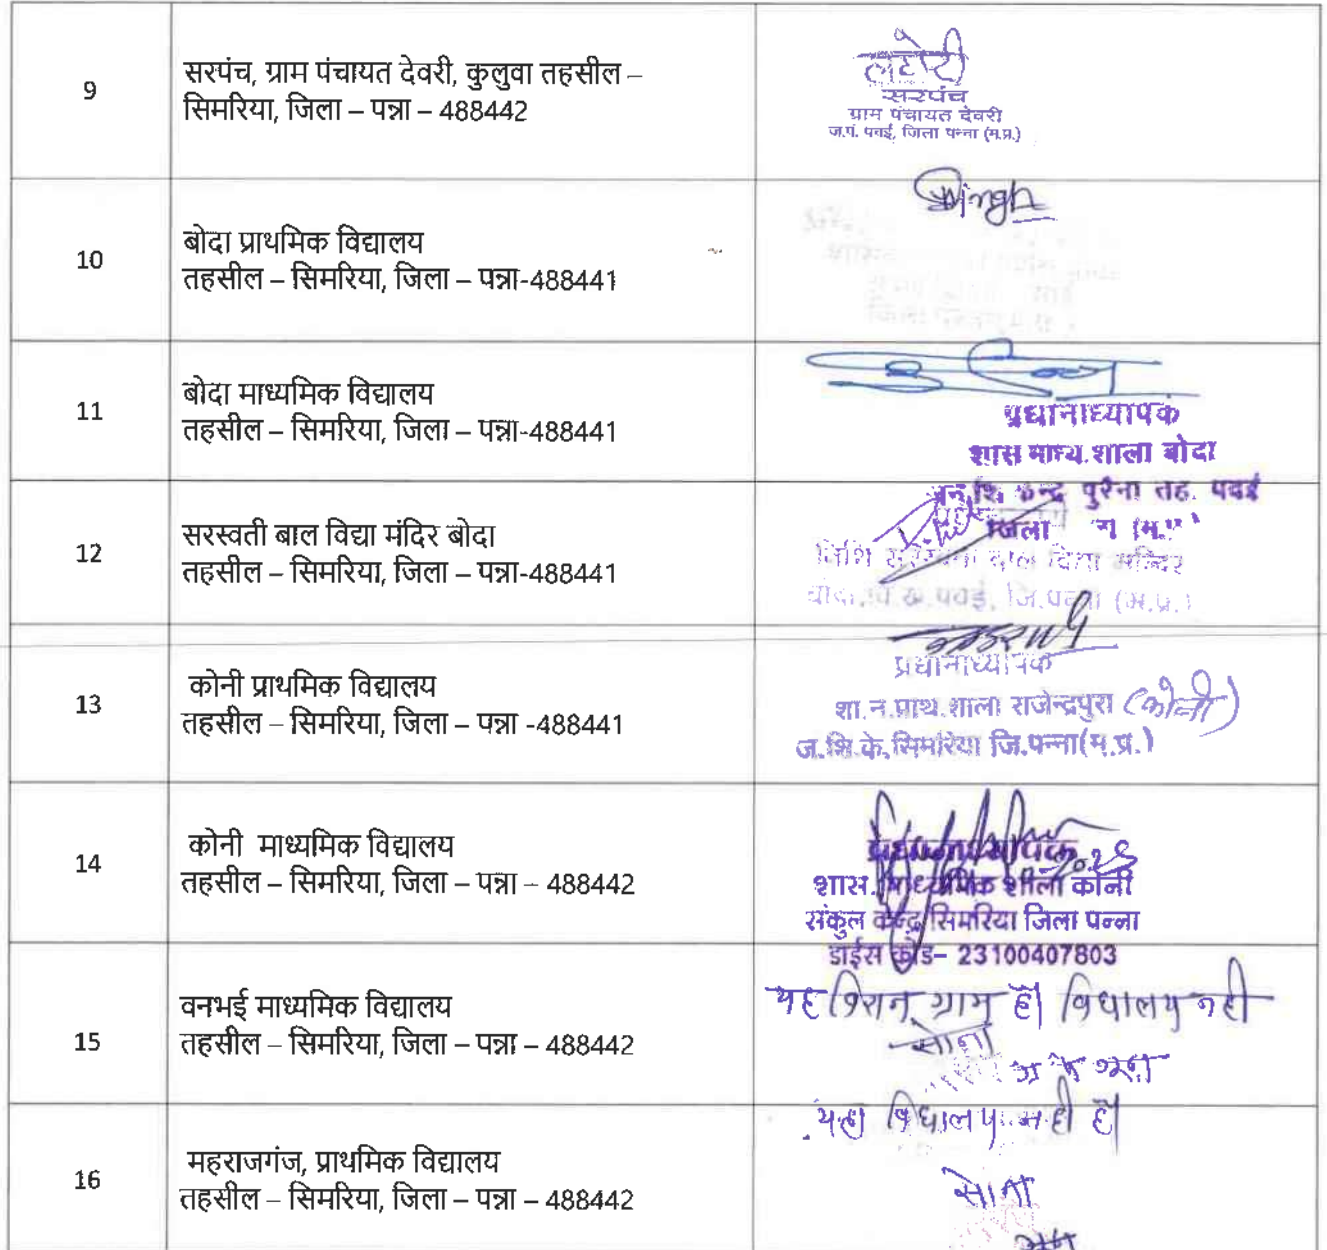 9
सरपंच, ग्राम पंचायत देवरी, कुलुवा तहसील –
सिमरिया, जिला – पन्ना – 488442
लटोरी
सरपंच
ग्राम पंचायत देवरी
ज.पं. पवई, जिला पन्ना (म.प्र.)
10
बोदा प्राथमिक विद्यालय
तहसील – सिमरिया, जिला – पन्ना-488441
Singh
11
बोदा माध्यमिक विद्यालय
तहसील – सिमरिया, जिला – पन्ना-488441
प्रधानाध्यापक
शास माध्य.शाला बोदा
पुरैना तह. पवई
जिला
12
सरस्वती बाल विद्या मंदिर बोदा
तहसील – सिमरिया, जिला – पन्ना-488441
बाल विद्या मन्दिर
पवई, जि.पन्ना (म.प्र.)
13
कोनी प्राथमिक विद्यालय
तहसील – सिमरिया, जिला – पन्ना -488441
प्रधानाध्यापक
शा.न.प्राथ.शाला राजेन्द्रपुरा (कोनी)
ज.शि.के.सिमरिया जि.पन्ना(म.प्र.)
14
कोनी माध्यमिक विद्यालय
तहसील – सिमरिया, जिला – पन्ना – 488442
प्रधानाध्यापक
शास. माध्यमिक शाला कोनी
संकुल केन्द्र सिमरिया जिला पन्ना
डाईस कोड– 23100407803
15
वनभई माध्यमिक विद्यालय
तहसील – सिमरिया, जिला – पन्ना – 488442
यह ग्राम है। विधालय नही
सोना
16
महराजगंज, प्राथमिक विद्यालय
तहसील – सिमरिया, जिला – पन्ना – 488442
यहा विधालय नही है।
सोना